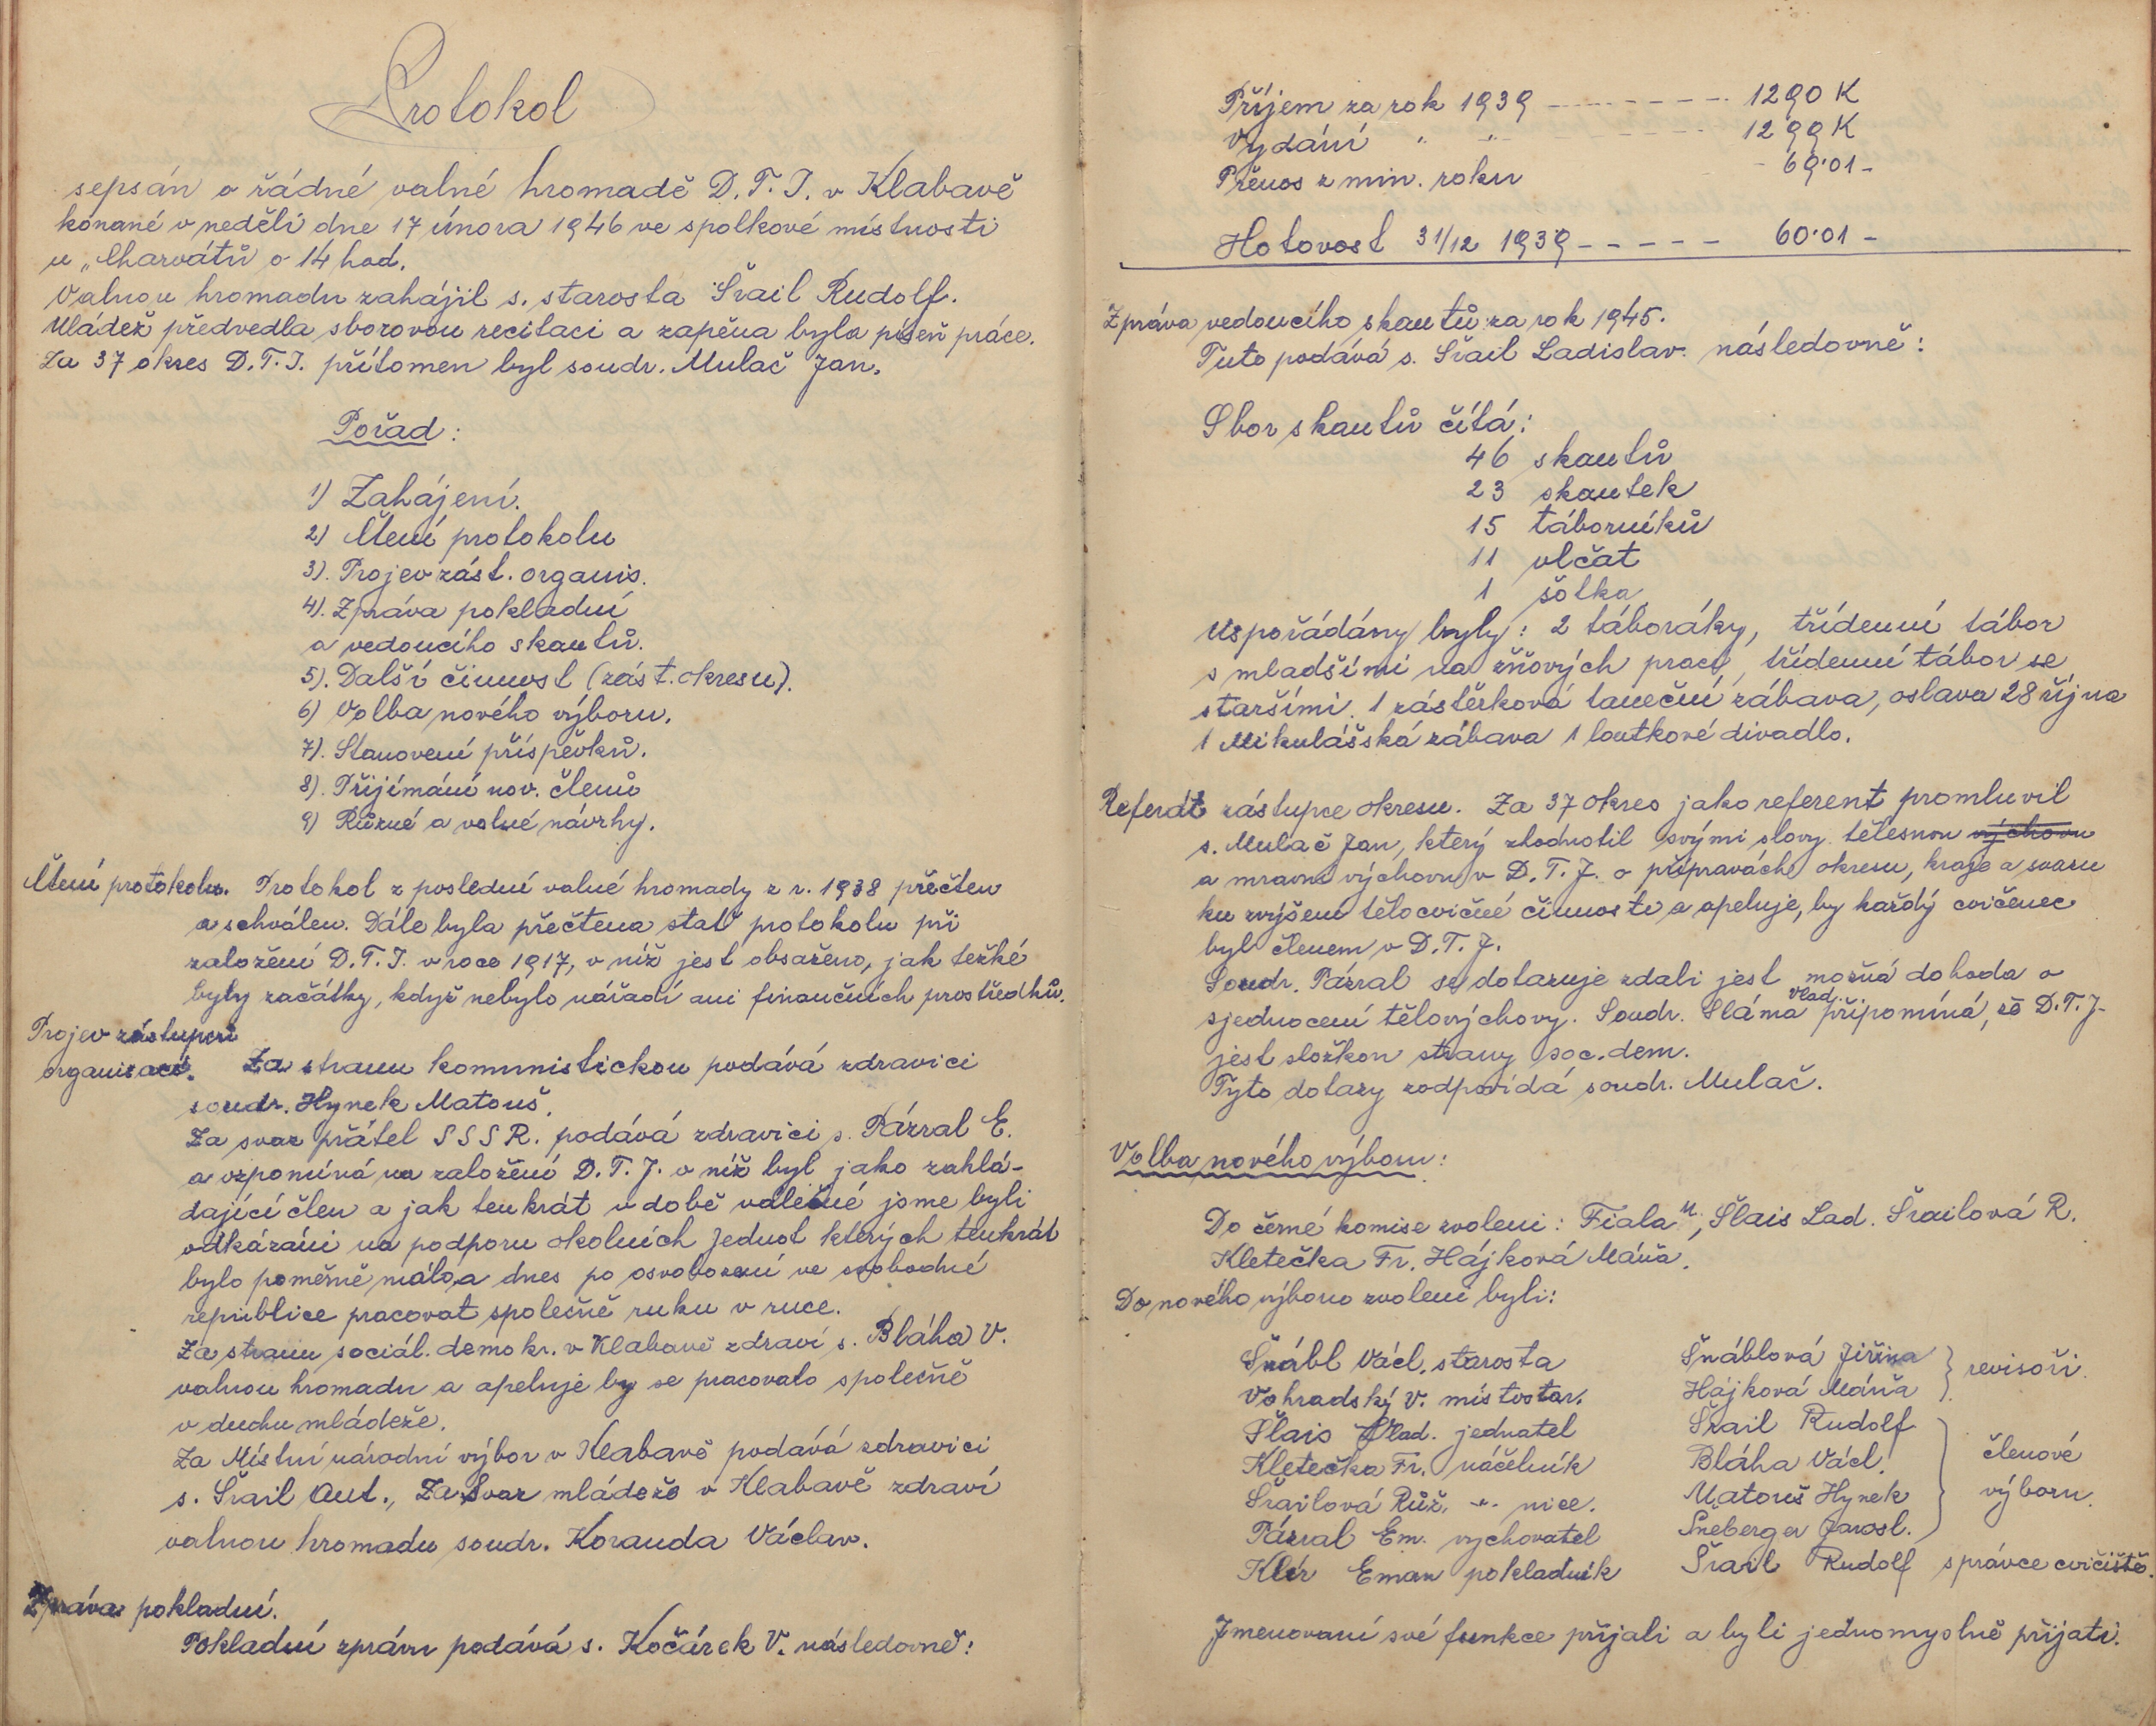 Protokol
sepsán o řádné valné hromadě D. T. J. v Klabavě
konané v neděli dne 17 února 1946 ve spolkové místnosti
u „Charvátů o 14 hod.
Valnou hromadu zahájil s. starosta Šrail Rudolf.
Mládež předvedla sborovou recitaci a zapěna byla píseň práce.
Za 37 okres D. T. J. přítomen byl soudr. Mulač Jan.
Pořad:
1) Zahájení.
2) Čtení protokolu
3). Projev zást. organis.
4). Zpráva pokladní
a vedoucího skautů.
5). Další činnost (zást. okresu).
6) Volba nového výboru.
7). Stanovení příspěvků.
8). Přijímání nov. členů
9) Různé a volné návrhy.
Čtení protokolu. Protokol z poslední valné hromady z r. 1938 přečten
a schválen. Dále byla přečtena stať protokolu při
založení D. T. J. v roce 1917, v níž jest obsaženo, jak težké
byly začátky, když nebylo nářadí ani finančních prostředků.
Projev zástupců
organisací. Za stranu komunistickou podává zdravici
soudr. Hynek Matouš.
Za svaz přátel SSSR. podává zdravici s. Pázral E.
a vzpomíná na založění D. T. J. v níž byl jako zahlá-
dající člen a jak tenkrát v době valečné jsme byli
odkázáni na podporu okolních Jednot kterých tenkrát
bylo poměrně málo, a dnes po osvobození ve svobodné
republice pracovat společně ruku v ruce.
Za stranu sociál. demokr. v Klabavě zdraví s. Bláha V.
valnou hromadu a apeluje by se pracovalo společně
v duchu mládeže.
Za Místní národní výbor v Klabavě podává zdravici
s. Šrail Ant., Za Svaz mládeže v Klabavě zdraví
valnou hromadu soudr. Koranda Václav.
Zpráva pokladní.
Pokladní zprávu podává s. Kočárek V. následovně:
Příjem za rok 1939 - - - - - - - - 1290 K
Vydání " " - - - 1299 K
Přenos z min. roku - 69·01 -
Hotovost 31/12 1939 - - - - - 60·01 -
Zpráva vedoucího skautů za rok 1945.
Tuto podává s. Šrail Ladislav následovně:
Sbor skautů čítá:
46 skautů
23 skautek
15 táborníků
11 vlčat
1 šotka
Uspořádány byly: 2 táboráky, třídenní tábor
s mladšími na žňových prací, třídenní tábor se
staršími. 1 zástěrková taneční zábava, oslava 28 října
1 Mikulášská zábava 1 loutkové divadlo.
Referát zástupce okresu. Za 37 okres jako referent promluvil
s. Mulač Jan, který zhodnotil svými slovy tělesnou výchovu
a mravní výchovu v D. T. J. o přípravách okresu, kraje a svazu
ku zvýšení tělocvičné činnosti a apeluje, by každý cvičenec
byl členem v D. T. J.
Soudr. Pázral se dotazuje zdali jest možná dohoda o
sjednocení tělovýchovy. Soudr. Sláma Vlad. připomíná, že D. T. J.
jest složkou strany soc. dem.
Tyto dotazy zodpovídá soudr. Mulač.
Volba nového výboru:
Do černé komise zvoleni: Fiala M., Šlais Lad. Šrailová R.
Kletečka Fr. Hájková Máňa.
Do nového výboru zvoleni byli:
Šnábl Václ. starosta
Vohradský V. místostar.
Šlais Vlad. jednatel
Kletečka Fr. náčelník
Šrailová Růž. -"- nice.
Pázral Em. vychovatel
Klír Eman pokladník
Šnáblová Jiřina } revisoři
Hájková Máňa
Šrail Rudolf
Bláha Václ. } členové
Matouš Hynek výboru.
Šneberger Jarosl.
Šrail Rudolf správce cvičiště.
Jmenovaní své funkce přijali a byli jednomyslně přijati.